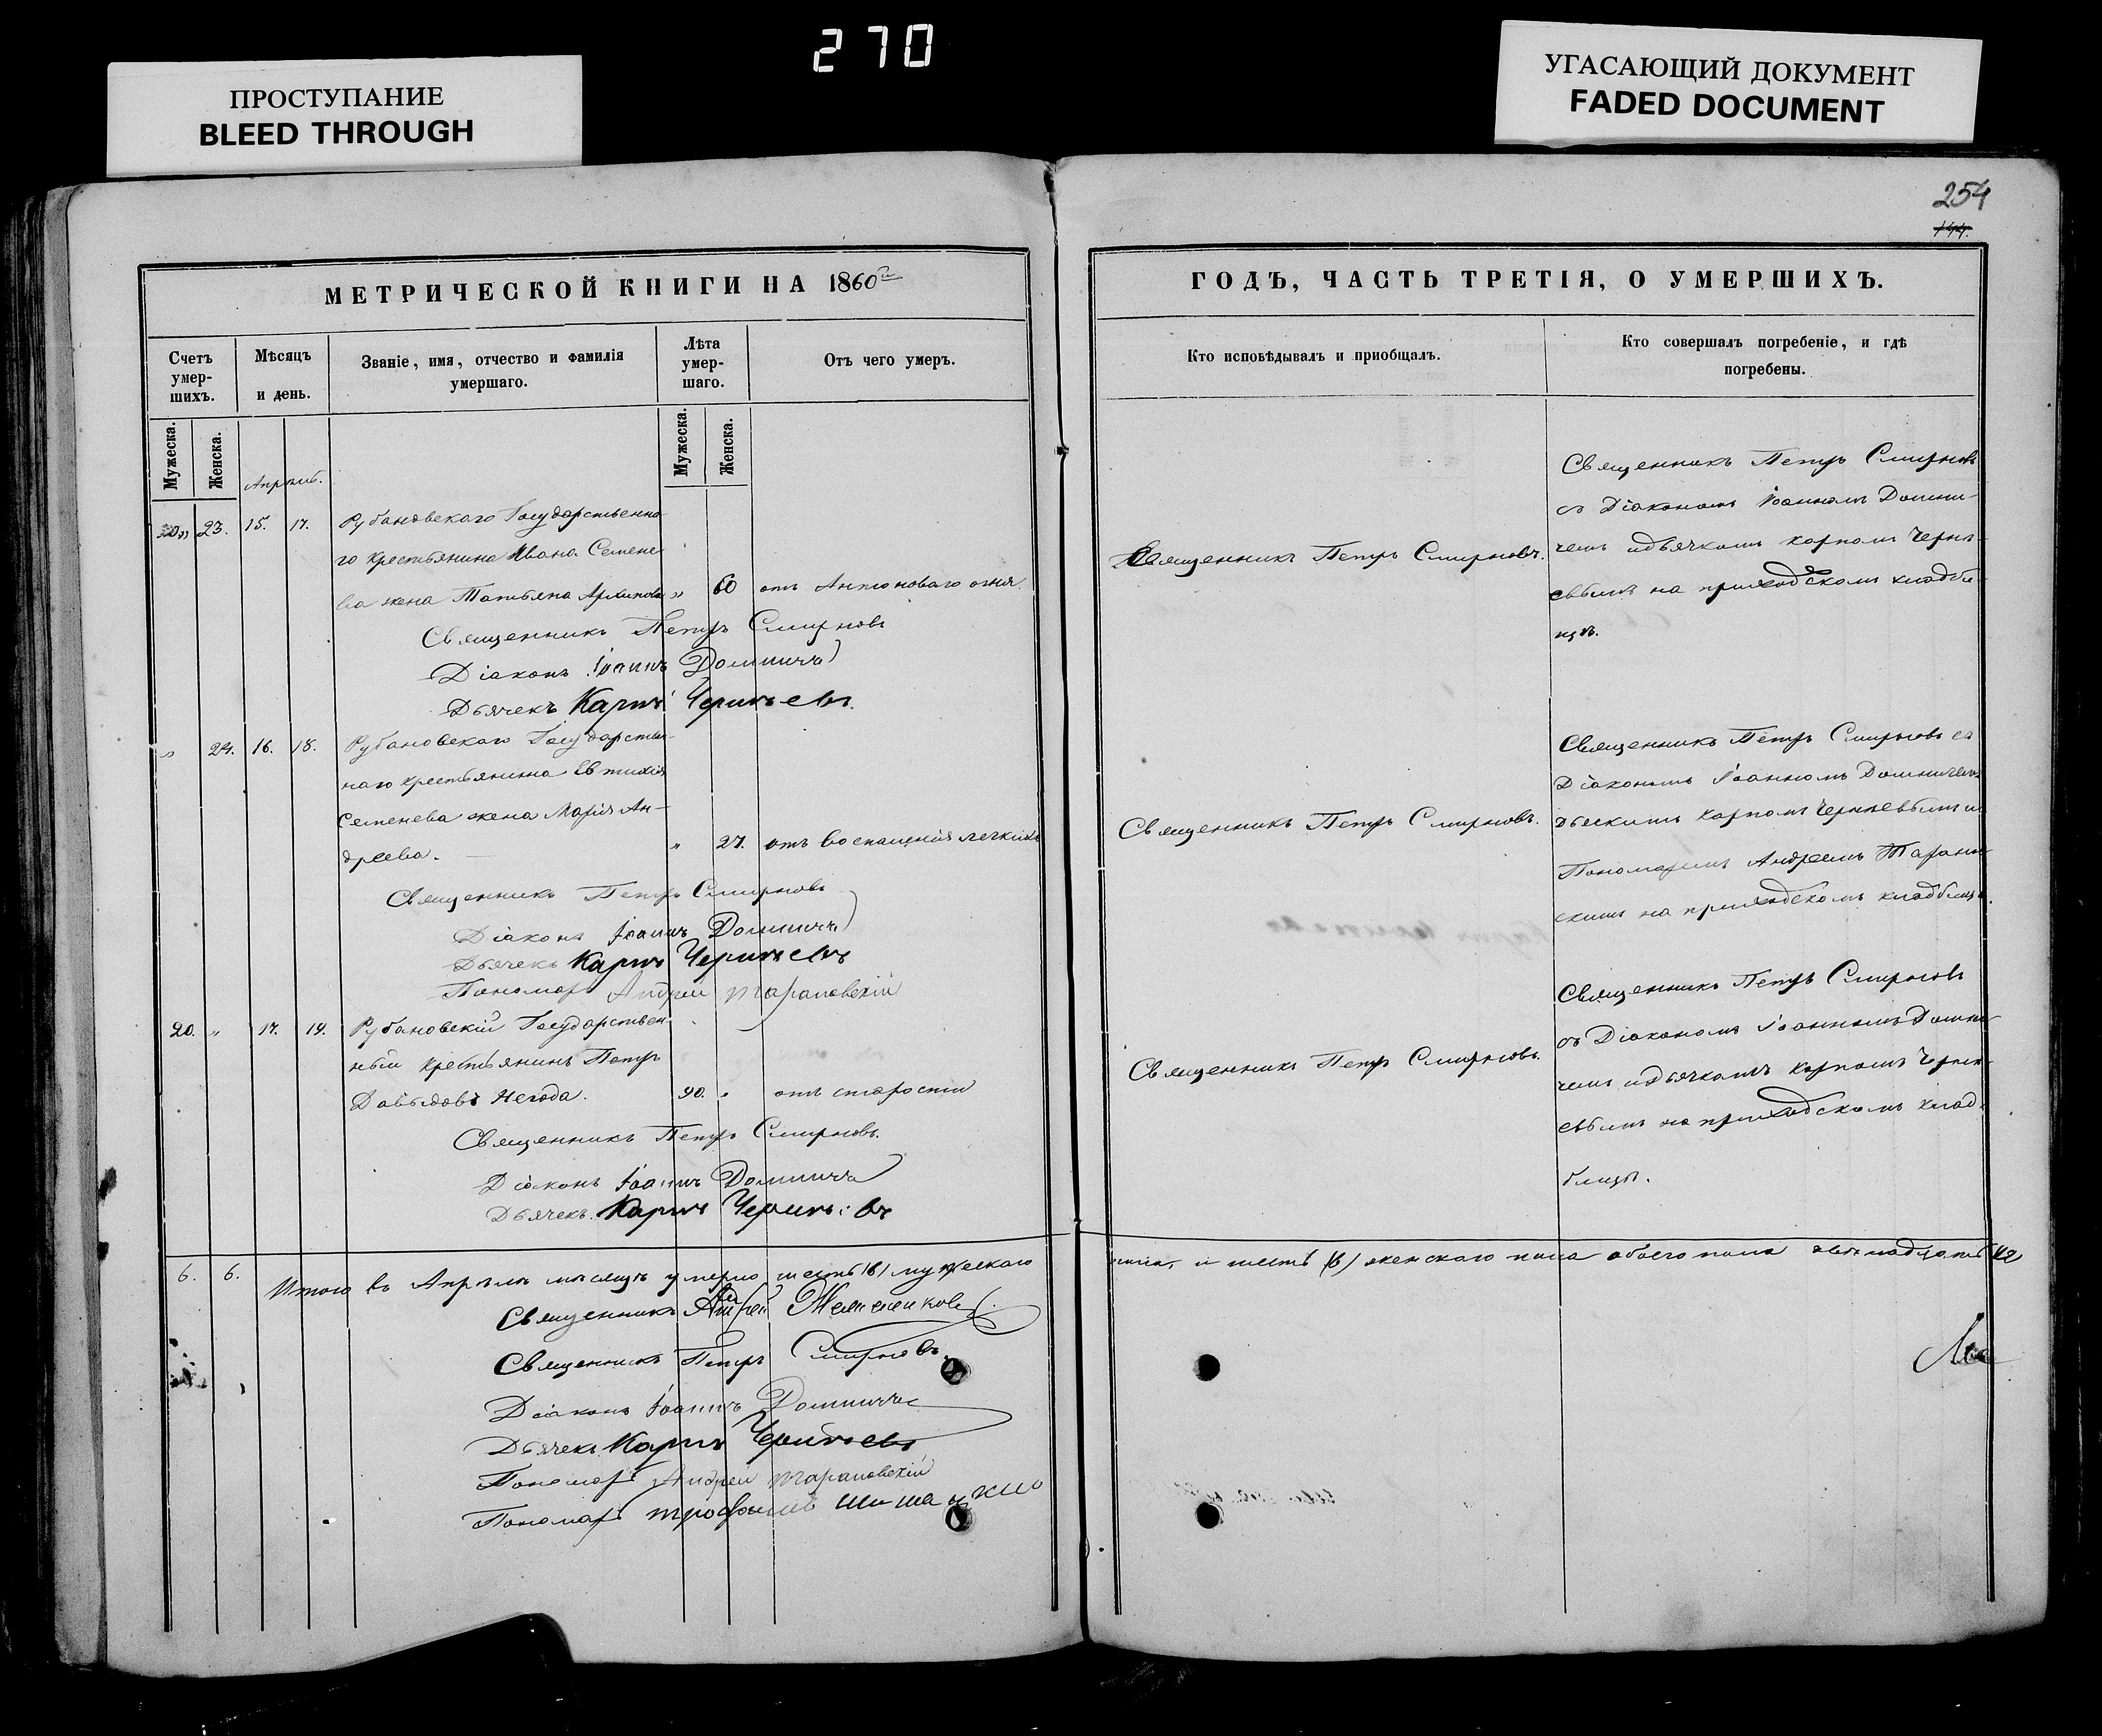 270
ПРОСТУПАНИЕ
BLEED THROUGH
УГАСАЮЩИЙ ДОКУМЕНТ
FADED DOCUMENT
254
144.
МЕТРИЧЕСКОЙ КНИГИ НА 1860й
Счетъ умер-шихъ.
Мѣсяцъ и день.
Званіе, имя, отчество и фамилія умершаго.
Лѣта умер-шаго.
Отъ чего умеръ.
Мужеска.
Женска.
Мужеска.
Женска.
Апрѣль.
23. 15. 17. Рубановскаго Государственна-
го крестьянина Ивана Семене-
ва жена Татьяна Архипова „ 60 отъ Антоноваго огня
Священникъ Петръ Смирновъ
Діаконъ Іоаннъ Домнича
Дьячекъ Карпъ Чернѣевъ
„ 24. 16. 18. Рубановскаго Государствен-
наго крестьянина Евтихія
Семенева жена Марія Ан-
дреева. „ 27. отъ воспаленія легкихъ
Священникъ Петръ Смирновъ
Діаконъ Іоаннъ Домнича
Дьячекъ Карпъ Чернѣевъ
Пономарь Андрей Тарановскій
20. „ 17. 19. Рубановскій Государствен-
ный крестьянинъ Петръ
Давыдовъ Негода. 90. „ отъ старости
Священникъ Петръ Смирновъ.
Діаконъ Іоаннъ Домнича
Дьячекъ Карпъ Чернѣевъ
6. 6. Итого въ Апрѣлѣ мѣсяцѣ умерло шесть (6) мужескаго
Священникъ Андрей
Священникъ Петръ Смирновъ
Діаконъ Іоаннъ Домнича
Дьячекъ Карпъ Чернѣевъ
Пономарь Андрей Тарановскій
Пономарь Трофимъ
ГОДЪ, ЧАСТЬ ТРЕТІЯ, О УМЕРШИХЪ.
Кто исповѣдывалъ и пріобщалъ.
Кто совершалъ погребеніе, и гдѣ погребены.
Священникъ Петръ Смирновъ.
Священникъ Петръ Смирновъ
съ Діакономъ Іоанномъ Домни-
чемъ и дьячкомъ Карпомъ Чернѣ-
евымъ на приходскомъ кладби-
щѣ.
Священникъ Петръ Смирновъ.
Священникъ Петръ Смирновъ съ
Діакономъ Іоанномъ Домничемъ
Карпомъ Чернѣевымъ и
Пономаремъ Андреемъ Таранов-
скимъ на приходскомъ кладбищѣ.
Священникъ Петръ Смирновъ.
Священникъ Петръ Смирновъ
съ Діакономъ Іоанномъ Домни-
чемъ и дьячкомъ Карпомъ Чернѣ-
евымъ на приходскомъ клад-
бищѣ.
и шесть (6) женскаго пола обоего пола двѣнадцать 12